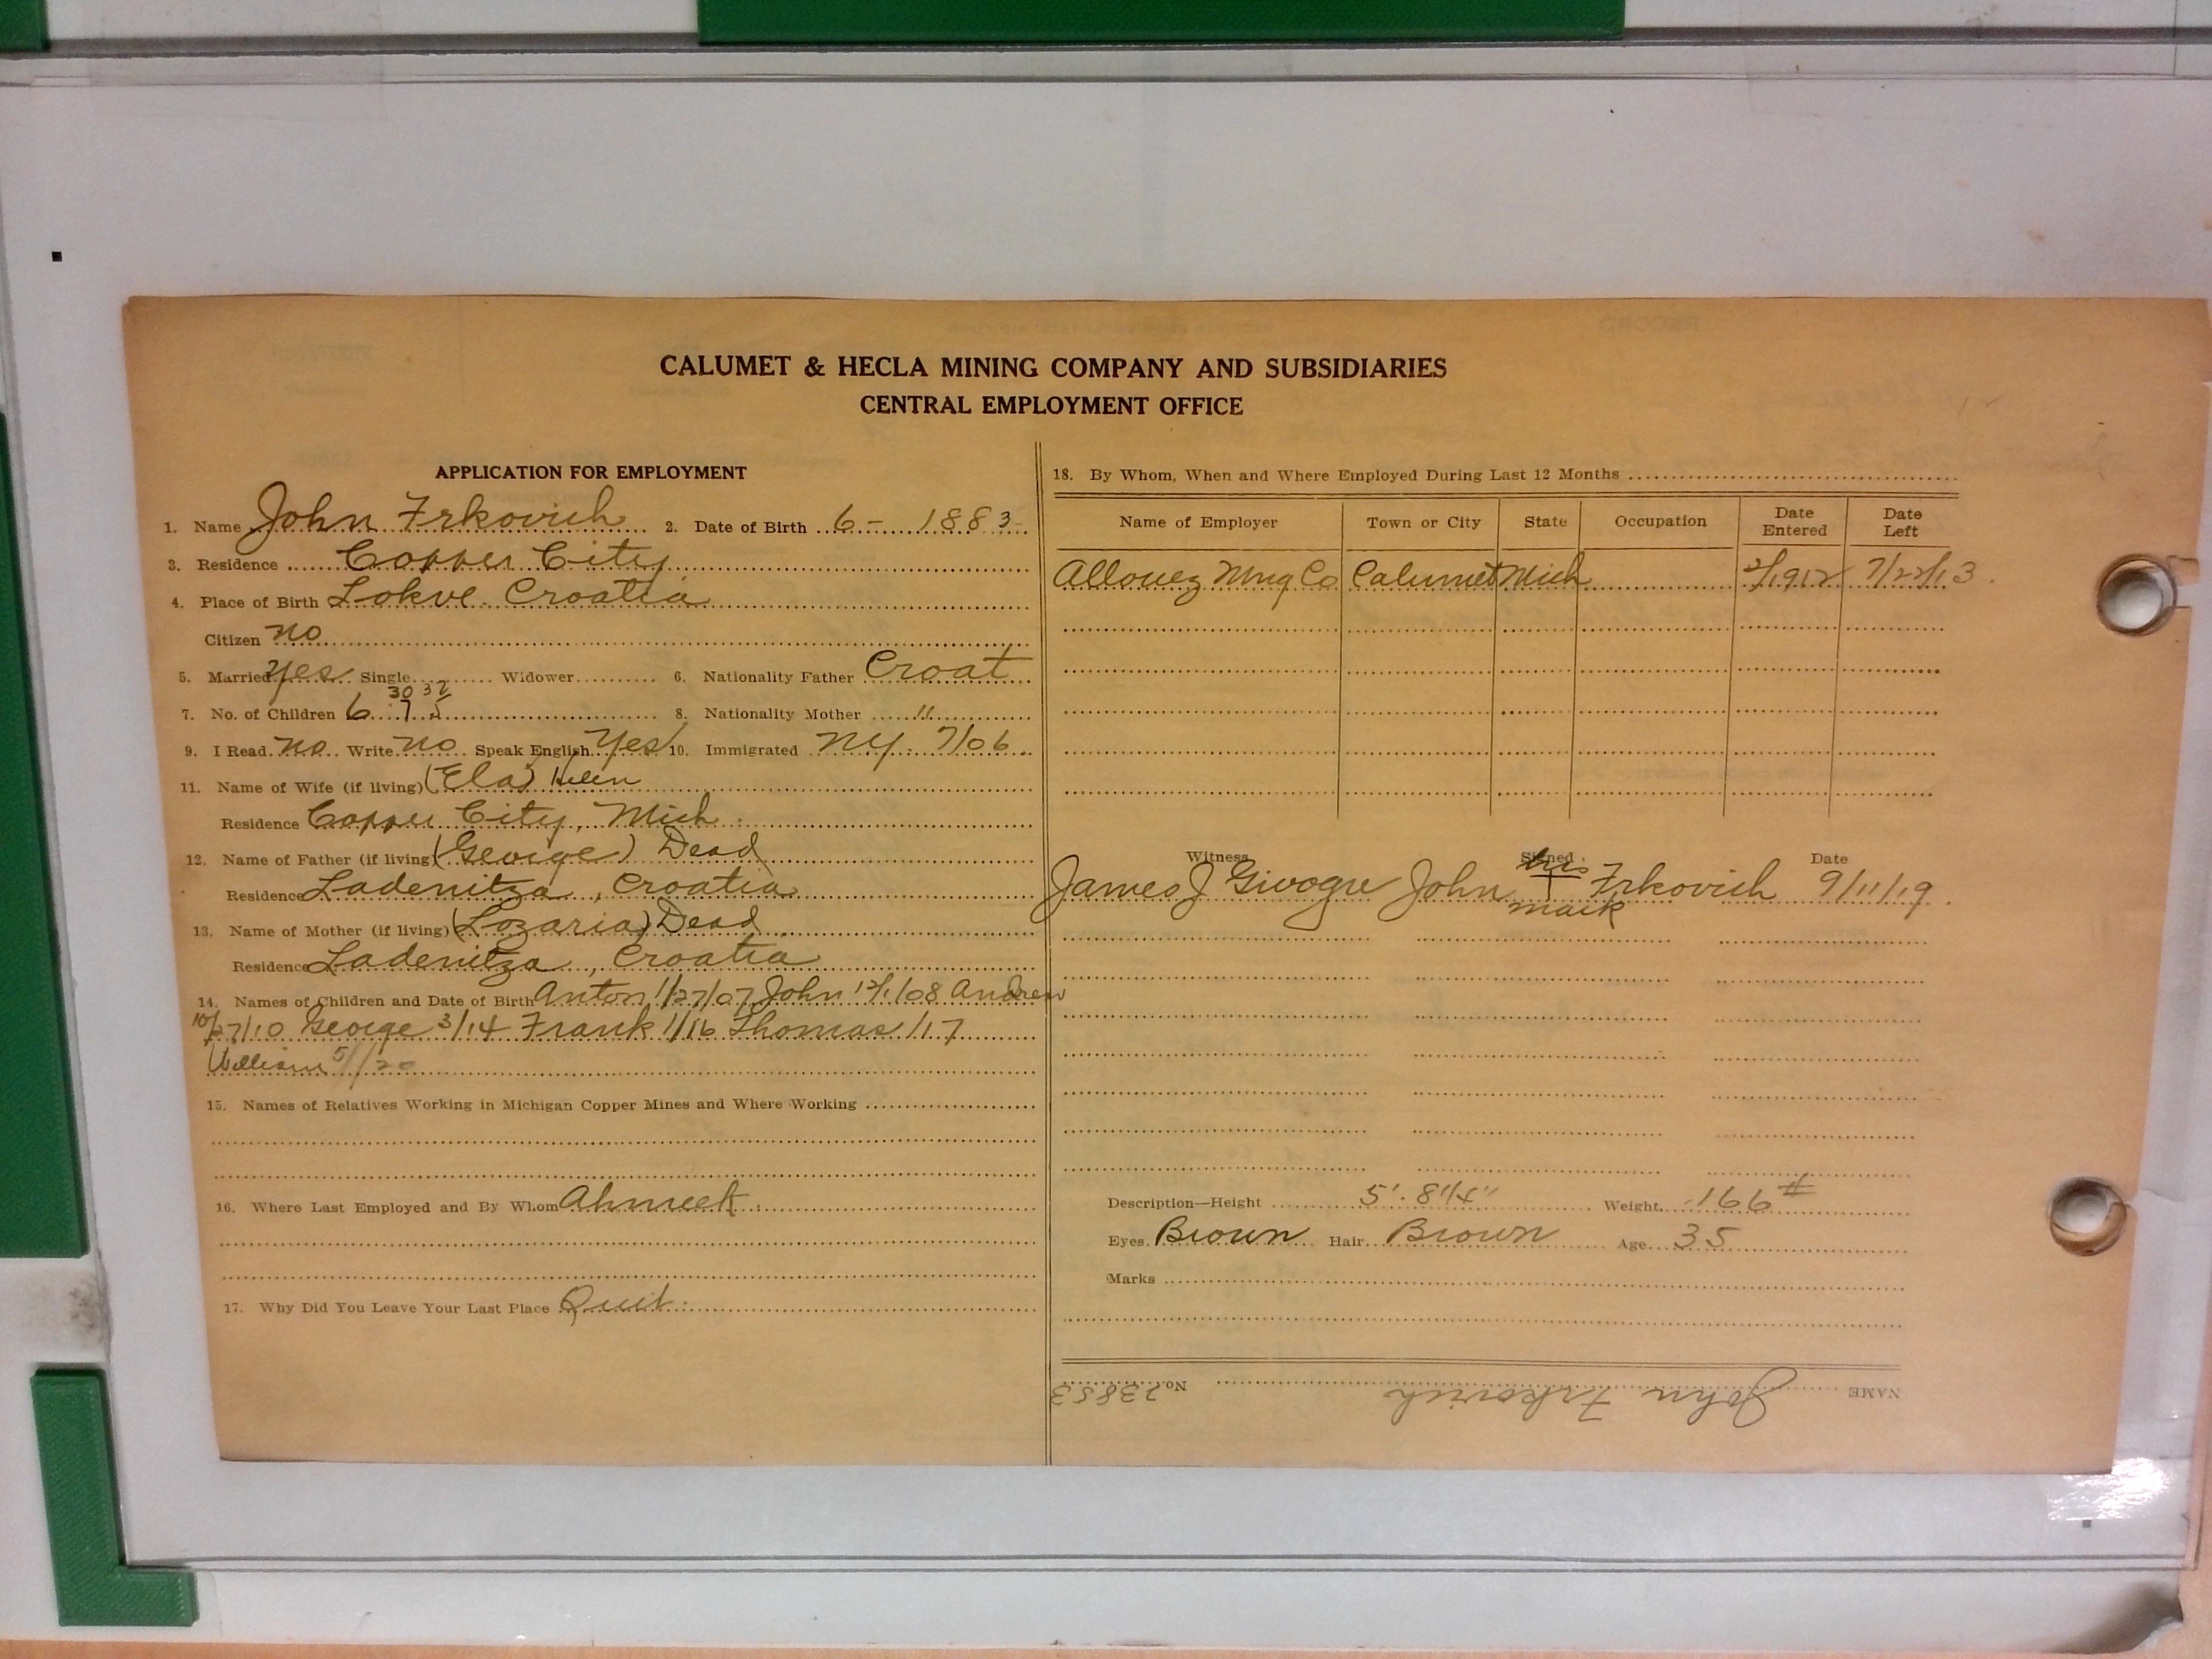 CALUMET & HECLA MINING COMPANY AND SUBSIDIARIES
CENTRAL EMPLOYMENT OFFICE
APPLICATION FOR EMPLOYMENT
1. Name John Frkovich 2. Date of Birth 6- 1883
3. Residence Copper City
4. Place of Birth Lokve Croatia
Citizen no
5. Married yes Single Widower 6. Nationality Father Croat
30 32
7. No. of Children 6 7 5 8. Nationality Mother "
9. I Read no Write no Speak English Yes 10. Immigrated NY. 7/06
11. Name of Wife (if living) (Ela) Helen
Residence Copper City, Mich
12. Name of Father (if living) (George) Dead
Residence Ladenitza, Croatia
13. Name of Mother (if living) (Lozaria) Dead
Residence Ladenitza, Croatia
14. Names of Children and Date of Birth Anton 1/27/07 John 12/1/08 Andrew
10/27/10 George 3/14 Frank 1/16 Thomas 1/17
William 5/1/20
15. Names of Relatives Working in Michigan Copper Mines and Where Working
16. Where Last Employed and By Whom Ahmeek
17. Why Did You Leave Your Last Place Quit
18. By Whom, When and Where Employed During Last 12 Months
Name of Employer Town or City State Occupation Date Entered Date Left
Allouez Mng Co Calumet Mich 2/1912 7/22/13
Witness Signed Date
his
James J Givogre John Frkovich 9/11/19
mark
Description—Height 5'. 8 1/4" Weight 166#
Eyes Brown Hair Brown Age 35
Marks
NAME John Frkovich No. 23853